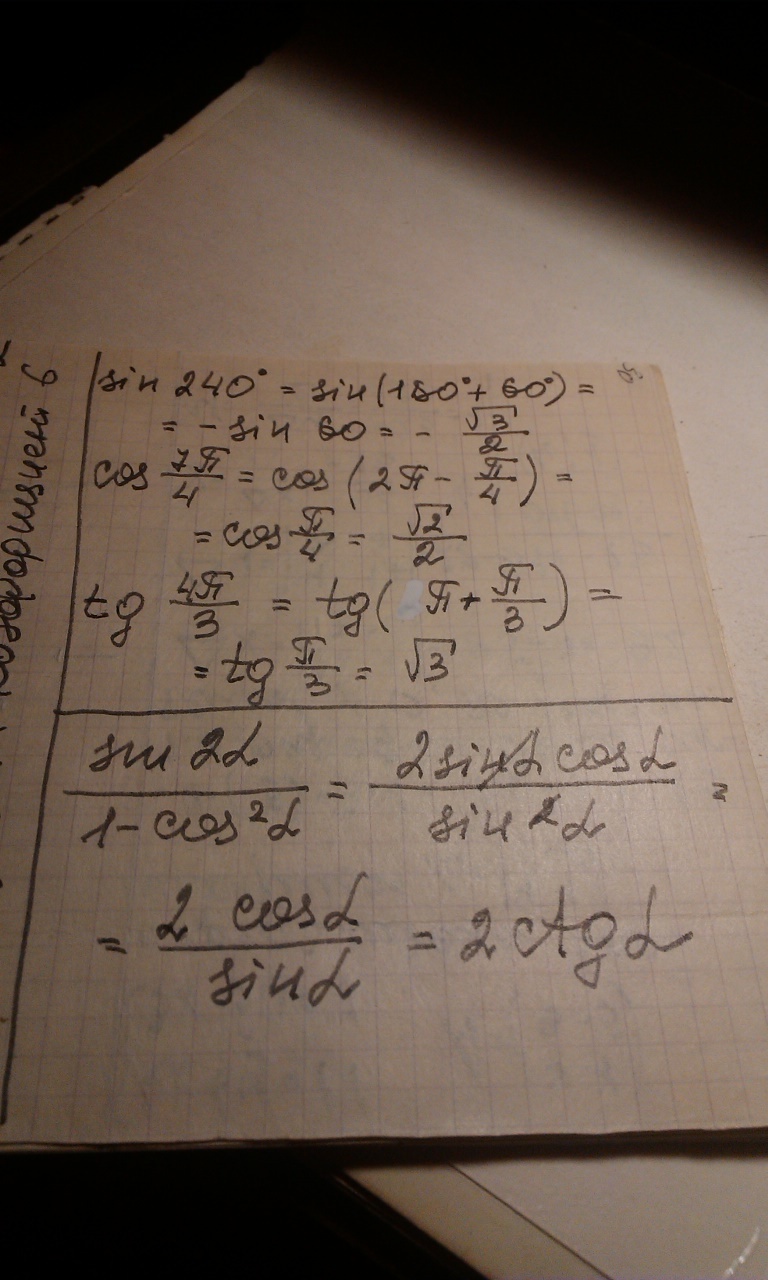 sin 240° = sin(180°+60°) =
= - sin 60 = - √3/2
cos 7π/4 = cos (2π - π/4) =
= cos π/4 = √2/2
tg 4π/3 = tg( π + π/3 ) =
= tg π/3 = √3
sin 2α / 1-cos²α = 2sinα cosα / sin²α =
= 2 cosα / sinα = 2 ctg α